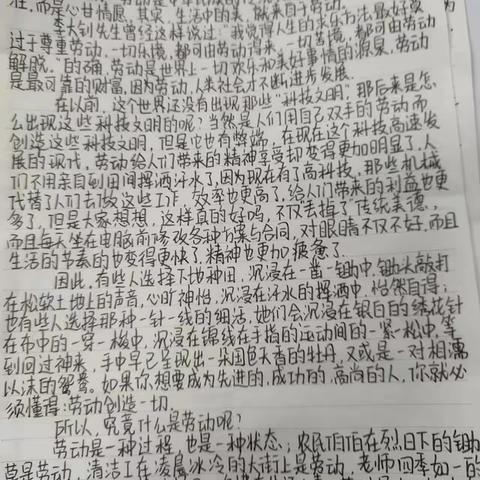 而是心甘情愿。其实,生活中的美,就来自于劳动。
李大钊先生曾经这样说过:"我觉得人生的求乐方法,最好莫
过于尊重劳动,一切乐境,都可由劳动得来,一切苦境,都可由劳动
解脱。"的确,劳动是世界上一切欢乐和美好事情的源泉,劳动
是最可靠的财富,因为劳动,人类社会才不断进步发展。
在以前,这个世界还没有出现那些"科技文明",那后来是怎
么出现这些科技文明的呢?当然是人们用自己双手的劳动而
创造这些科技文明,但是也有弊端,在现在这个科技高速发
展的现代,劳动给人们带来的精神享受却变得更加明显了,人
们不用亲自到田间挥洒汗水了,因为现在有了高科技,那些机械
代替了人们去做这些工作,效率也更高了,给人们带来的利益也更
多了,但是大家想想,这样真的好吗,不仅丢掉了"传统美德,
而且每天坐在电脑前修改各种方案与合同,对眼睛不仅不好,而且
生活的节奏的也变得更快了,精神也更加疲惫了。
因此,有些人选择下地种田,沉浸在一凿一锄中,锄头敲打
在松软土地上的声音,心旷神怡,沉浸在汗水的挥洒中,怡然自得;
也有些人选择那种一针一线的细活,她们会沉浸在银白的绣花针
在布中的一穿一梭中,沉浸在锦线在手指的运动间的一紧一松中,等
到回过神来,手中早已呈现出一朵国色天香的牡丹,又或是一对相濡
以沫的鸳鸯。如果你想要成为先进的,成功的,高尚的人,你就必
须懂得:劳动创造一切。
所以,究竟什么是劳动呢?
劳动是一种过程,也是一种状态;农民伯伯在烈日下的锄
草是劳动,清洁工在凌晨冰冷的大街上是劳动,老师四季如一的